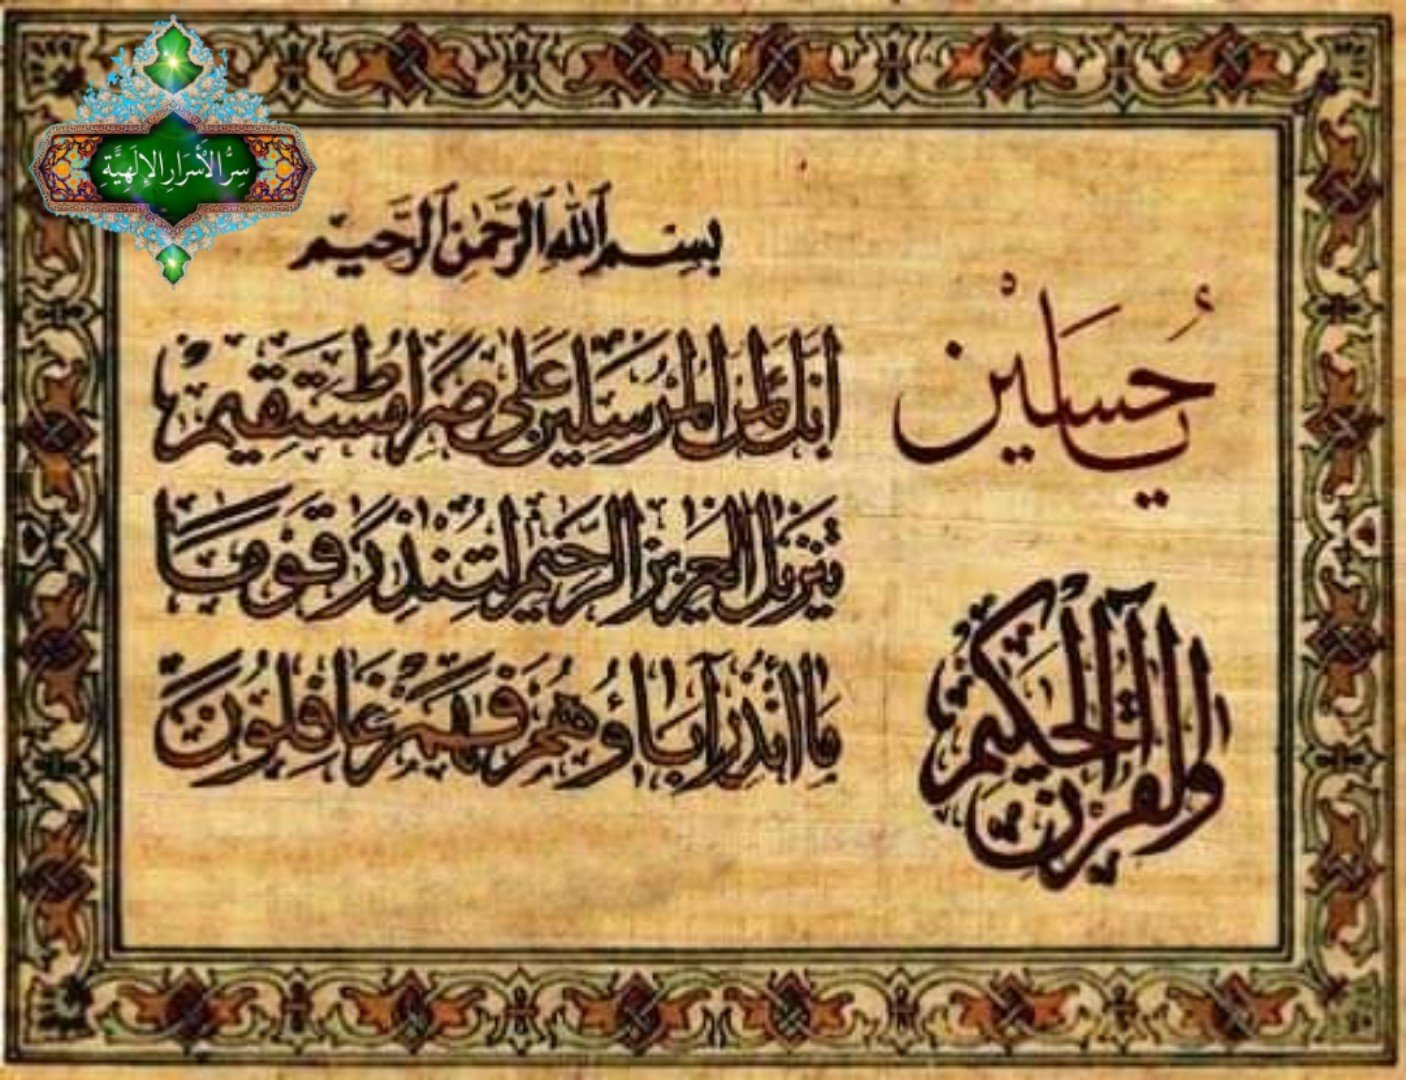 سِرُّ الْأَسْرَارِ الْإِلَهِيَّةِ
بسم الله الرحمن الرحيم
يا حُسَيْن
والقرآن الحكيم
انك لمن المرسلين على صراط مستقيم
تنزيل العزيز الرحيم لتنذر قوما
ما انذر آباؤهم فهم غافلون